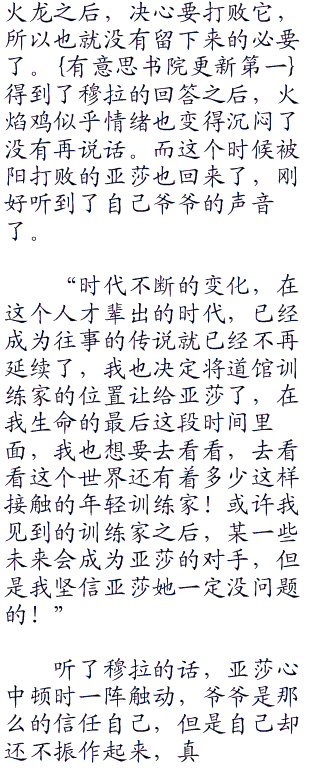 火龙之后，决心要打败它，
所以也就没有留下来的必要
了。{有意思书院更新第一}
得到了穆拉的回答之后，火
焰鸡似乎情绪也变得沉闷了
没有再说话。而这个时候被
阳打败的亚莎也回来了，刚
好听到了自己爷爷的声音
了。
“时代不断的变化，在
这个人才辈出的时代，已经
成为往事的传说就已经不再
延续了，我也决定将道馆训
练家的位置让给亚莎了，在
我生命的最后这段时间里
面，我也想要去看看，去看
看这个世界还有着多少这样
接触的年轻训练家！或许我
见到的训练家之后，某一些
未来会成为亚莎的对手，但
是我坚信亚莎她一定没问题
的！”
听了穆拉的话，亚莎心
中顿时一阵触动，爷爷是那
么的信任自己，但是自己却
还不振作起来，真